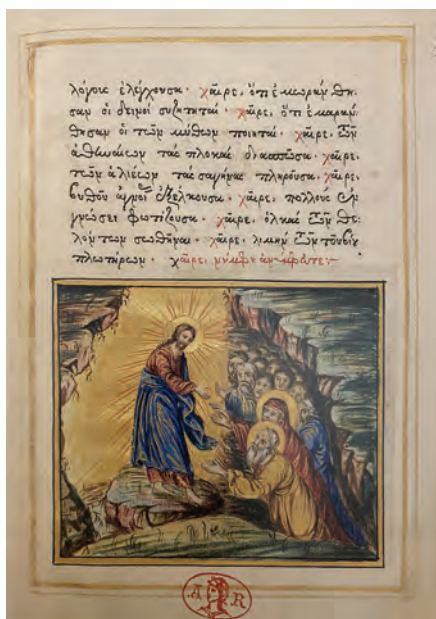 λόγοις ἐλέγχουσα· χαῖρε, ὅτι ἐμωράνθη-
σαν οἱ δεινοὶ συζητηταί· χαῖρε, ὅτι ἐμαράν-
θησαν οἱ τῶν μύθων ποιηταί· χαῖρε, τῶν
ἀθηναίων τὰς πλοκὰς διασπῶσα· χαῖρε,
τῶν ἁλιέων τὰς σαγήνας πληροῦσα· χαῖρε,
βυθοῦ ἀγνοίας ἐξέλκουσα· χαῖρε, πολλοὺς ἐν
γνώσει φωτίζουσα· χαῖρε, ὁλκὰς τῶν θε-
λόντων σωθῆναι· χαῖρε, λιμὴν τῶν τοῦ βίου
πλωτήρων· χαῖρε, νύμφη ἀνύμφευτε·
A R